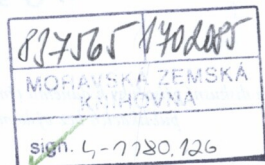 837565 1702005
MORAVSKÁ ZEMSKÁ
KNIHOVNA
sign. 4-1180.126